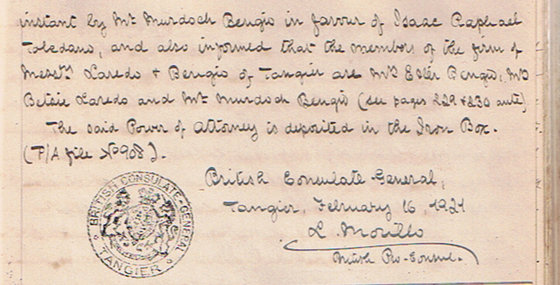 instant by Mr. Murdoch Bengio in favour of Isaac Raphael
Toledano, and also informed that the members of the firm of
Messrs. Laredo & Bengio of Tangier are Mrs Esther Bengio, Mrs
Betsie Laredo and Mr. Murdoch Bengio (see pages 229 & 230 ante)
The said Power of Attorney is deposited in the Iron Box.
(P/A file No 908).
British Consulate General,
Tangier, February 16, 1921
Pro-Consul.
BRITISH CONSULATE-GENERAL
TANGIER